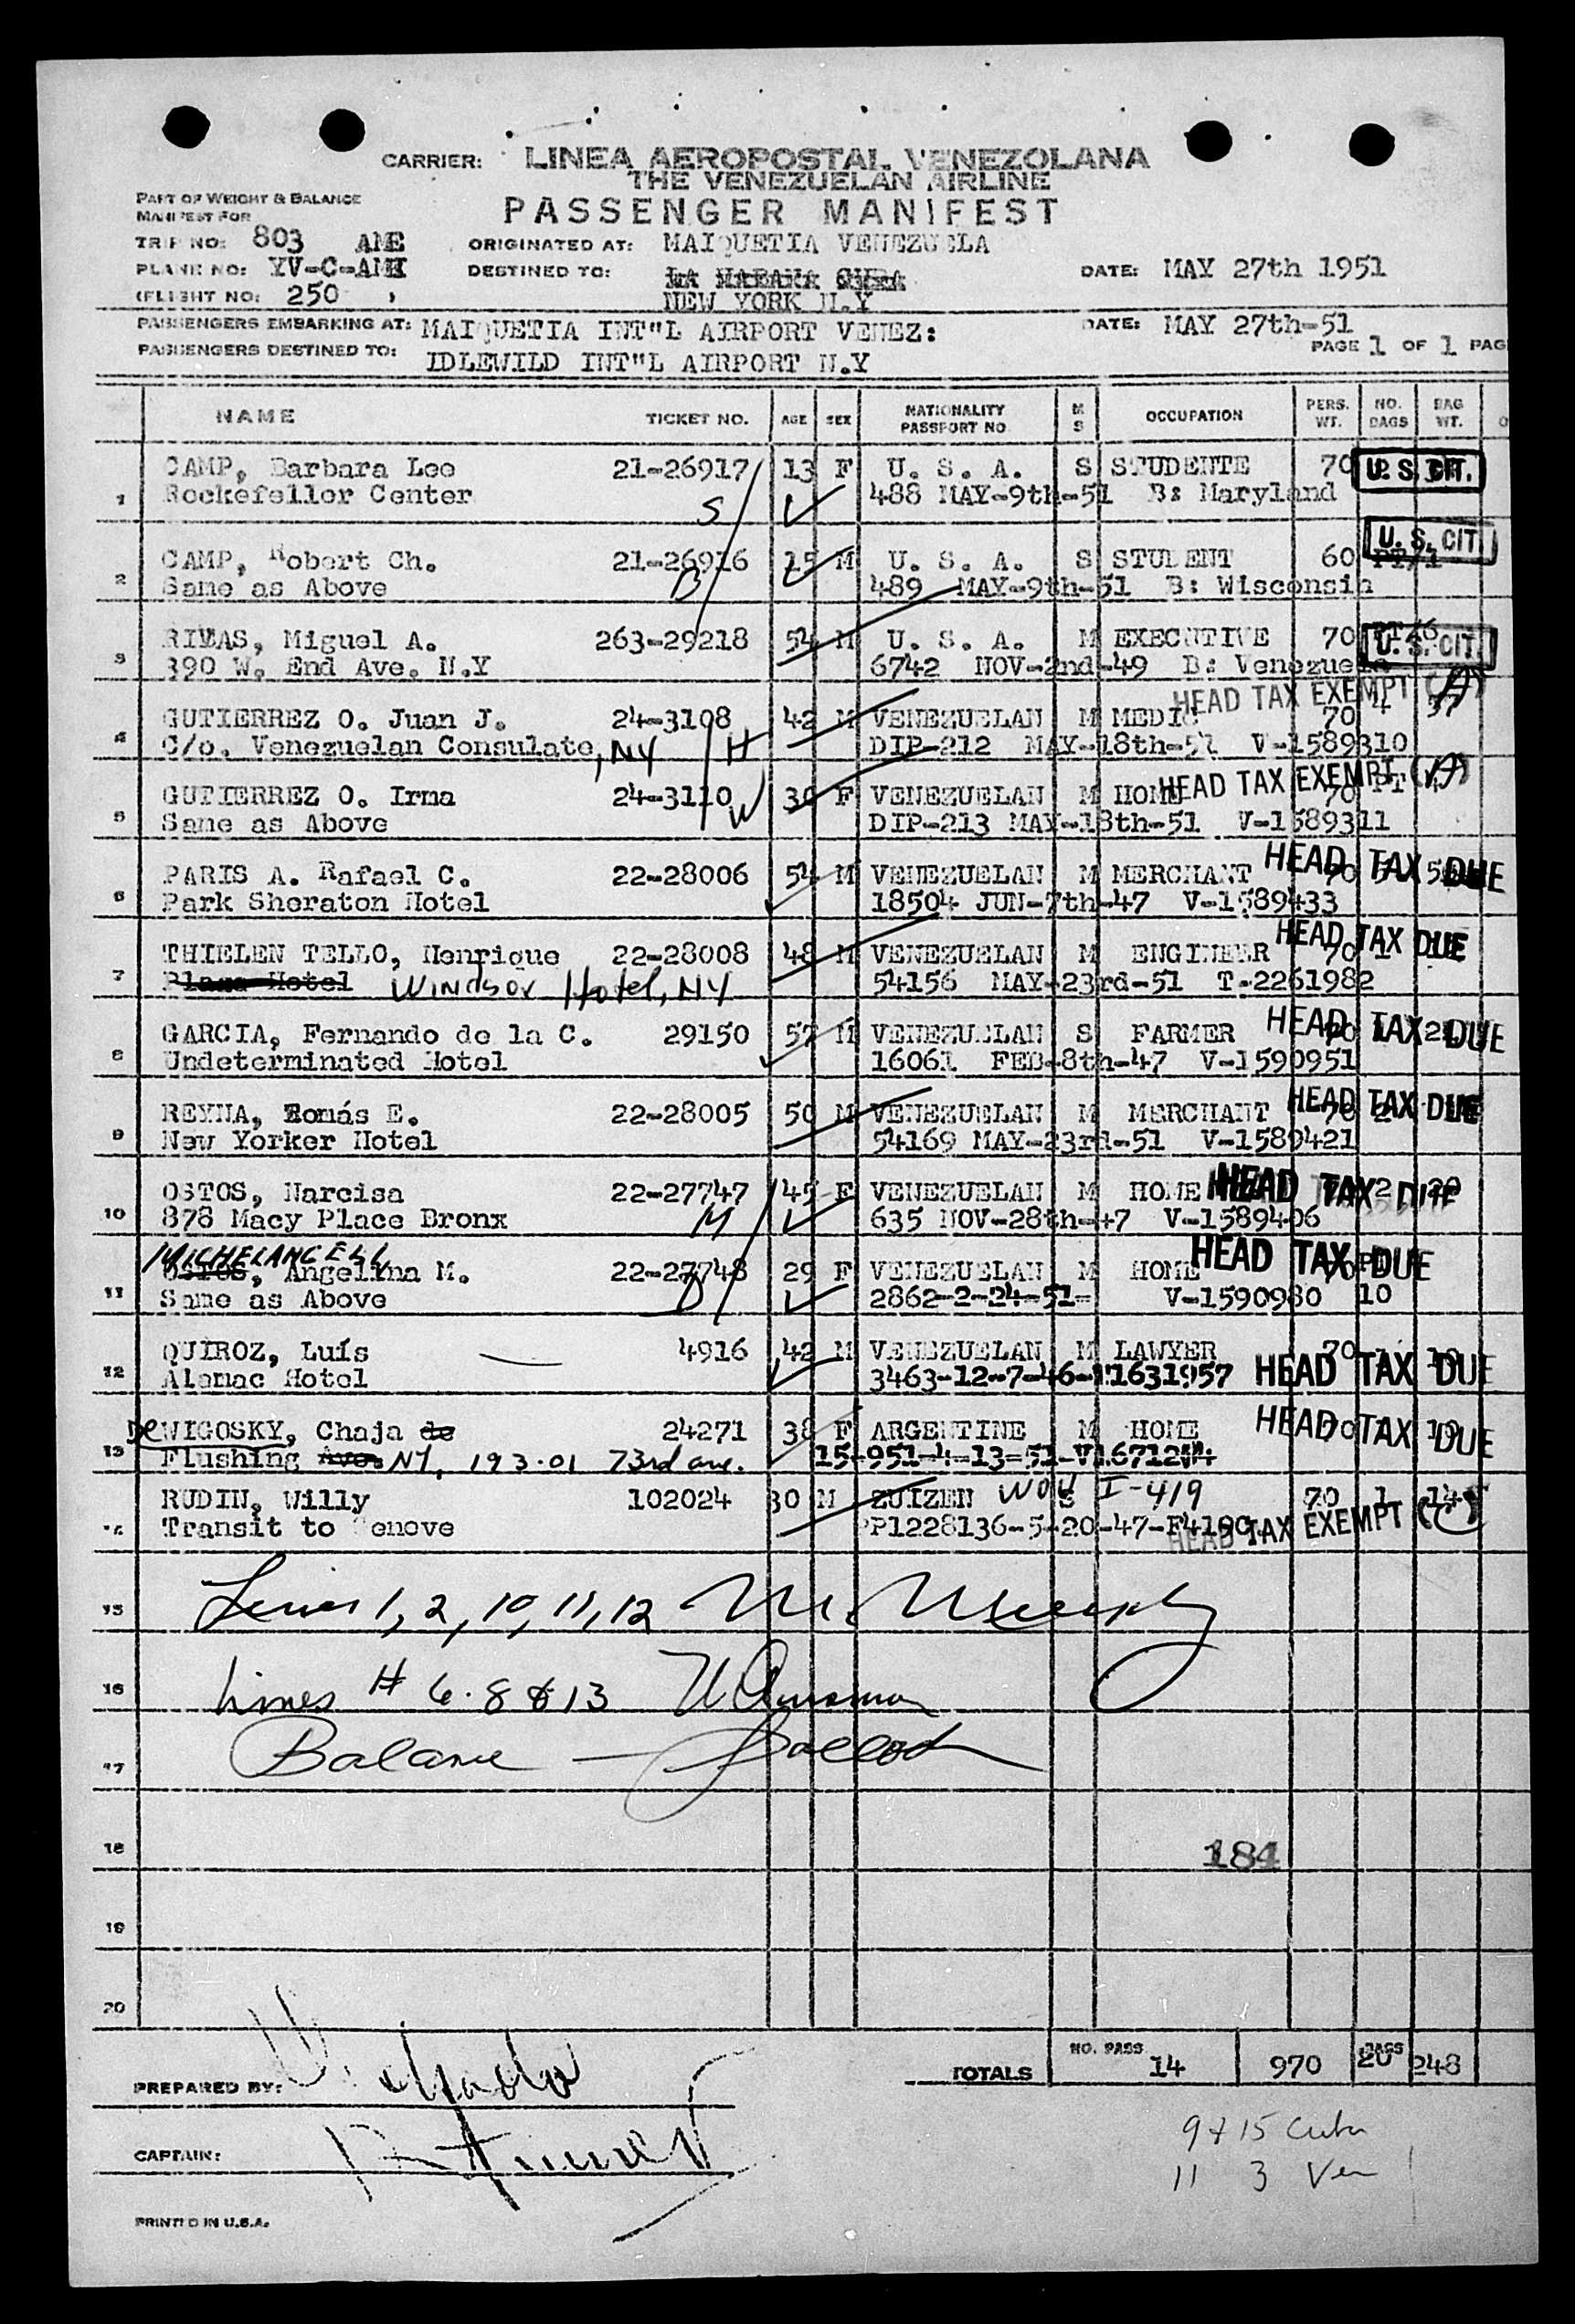 CARRIER: LINEA AEROPOSTAL VENEZOLANA
THE VENEZUELAN AIRLINE
PASSENGER MANIFEST
PART OF WEIGHT & BALANCE
MANIFEST FOR
TRIP NO: 803 AME
ORIGINATED AT: MAIQUETIA VENEZUELA
PLANE NO: YV-C-AME
DESTINED TO: LA HABANA CUBA
DATE: MAY 27th 1951
FLIGHT NO: 250
NEW YORK N.Y
PASSENGERS EMBARKING AT: MAIQUETIA INT"L AIRPORT VENEZ:
DATE: MAY 27th-51
PASSENGERS DESTINED TO: IDLEWILD INT"L AIRPORT N.Y
PAGE 1 OF 1 PAG
NAME TICKET NO. AGE SEX NATIONALITY PASSPORT NO M S OCCUPATION PERS. WT. NO. BAGS BAG WT.
CAMP, Barbara Lee 21-26917 13 F U. S. A. S STUDENTE 70 U. S. CIT.
1 Rockefeller Center S 488 MAY-9th-51 B: Maryland
CAMP, Robert Ch. 21-26916 15 M U. S. A. S STUDENT 60 U. S. CIT.
2 Same as Above B 489 MAY-9th-51 B: Wisconsin
RIVAS, Miguel A. 263-29218 54 M U. S. A. M EXECUTIVE 70 U. S. CIT.
3 390 W. End Ave. N.Y 6742 NOV-2nd-49 B: Venezuela
HEAD TAX EXEMPT (A)
GUTIERREZ O. Juan J. 24-3108 42 M VENEZUELAN M MEDIC 70 1 37
4 C/o. Venezuelan Consulate, NY H DIP-212 MAY-18th-51 V-1589310
HEAD TAX EXEMPT (A)
GUTIERREZ O. Irma 24-3110 W F VENEZUELAN M HOME 70 PT
5 Same as Above DIP-213 MAY-18th-51 V-1589311
PARIS A. Rafael C. 22-28006 54 M VENEZUELAN M MERCHANT 70 HEAD TAX DUE
6 Park Sheraton Hotel 18504 JUN-7th-47 V-1589433
THIELEN TELLO, Henrique 22-28008 48 M VENEZUELAN M ENGINEER 70 HEAD TAX DUE
7 Plaza Hotel Windsor Hotel, NY 54156 MAY-23rd-51 T-2261982
GARCIA, Fernando de la C. 29150 57 M VENEZUELAN S FARMER HEAD TAX DUE
8 Undeterminated Hotel 16061 FEB-8th-47 V-1590951
REYNA, Tomás E. 22-28005 50 M VENEZUELAN M MERCHANT 70 HEAD TAX DUE
9 New Yorker Hotel 54169 MAY-23rd-51 V-1589421
OSTOS, Narcisa 22-27747 45 F VENEZUELAN M HOME HEAD TAX DUE
10 878 Macy Place Bronx M 635 NOV-28th-47 V-1589406
MICHELANGELL
OSTOS, Angelina M. 22-27748 29 F VENEZUELAN M HOME HEAD TAX DUE
11 Same as Above D 2862-2-24-51- V-1590980 10
QUIROZ, Luís 4916 42 M VENEZUELAN M LAWYER 70
12 Alamac Hotel 3463-12-7-46-V1631957 HEAD TAX DUE
De WIGOSKY, Chaja de 24271 38 F ARGENTINE M HOME HEAD TAX DUE
13 Flushing Ave. NY, 193-01 73rd ave. 15-951-4-13-51-
RUDIN, Willy 102024 30 M ZUIZEN WOV S I-419 70 1 14
14 Transit to Genove PP1228136-5-20-47- HEAD TAX EXEMPT (C)
15 Lines 1, 2, 10, 11, 12
16 Lines # 6. 8 & 13
17 Balance
18 184
19
20
PREPARED BY:
TOTALS NO. PASS 14 970 BAGS 20 248
CAPTAIN:
9 & 15 Cuba
11 3 Ven
PRINTED IN U.S.A.